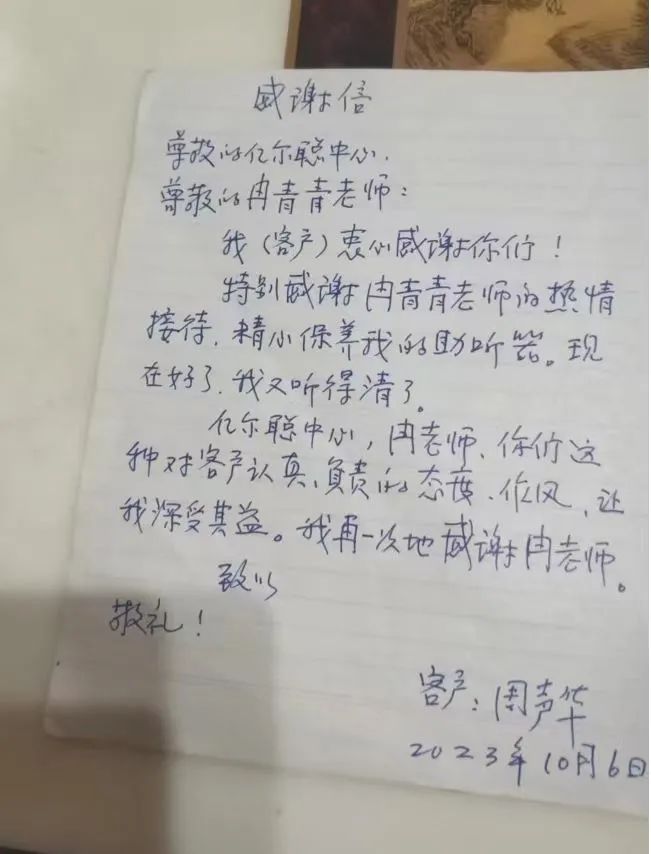 感谢信
尊敬的亿尔聪中心.
尊敬的冉青青老师：
我（客户）衷心感谢你们！
特别感谢冉青青老师的热情
接待，精心保养我的助听器。现
在好了，我又听得清了。
亿尔聪中心，冉老师、你们这
种对客户认真、负责的态度、作风，让
我深受其益。我再一次地感谢冉老师。
致以
敬礼！
客户：周声华
2023年10月6日